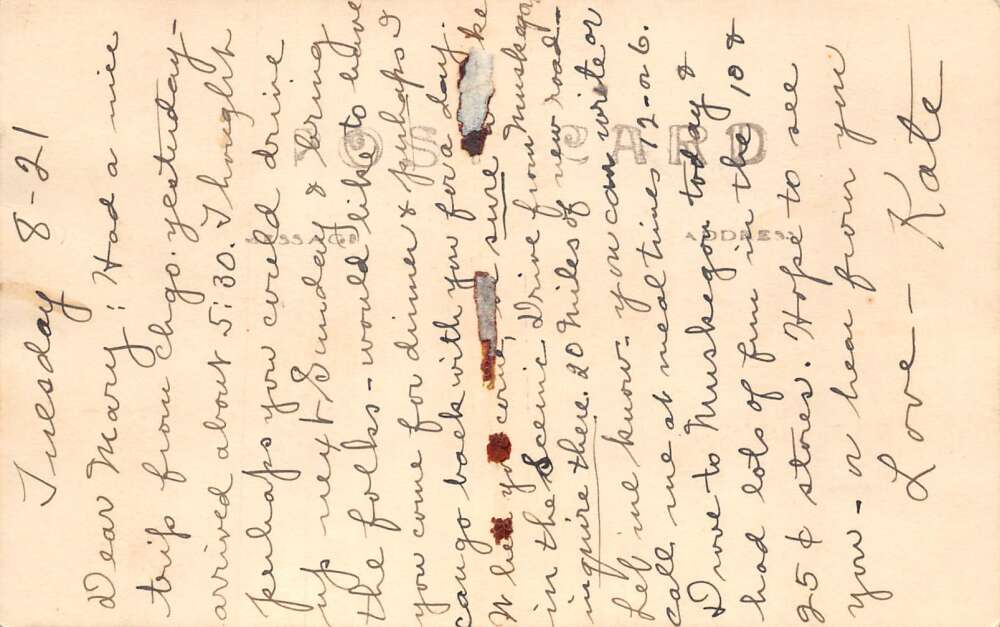 Tuesday 8-21
Dear Mary: Had a nice
trip from Chgo. yesterday-
arrived about 5:30. Thought
perhaps you could drive
up next Sunday & bring
the folks - would like to have
you come for dinner & perhaps I
can go back with you for a day.
When you come, sure ke
in the Scenic Drive from Muskegon,
inquire there. 20 miles of new road -
Let me know - you can write or
call me at meal times 12 - or 6.
Drove to Muskegon today &
had lots of fun in the 10 &
25¢ stores. Hope to see
you - or hear from you
Love - Kate
POST CARD
MESSAGE
ADDRESS